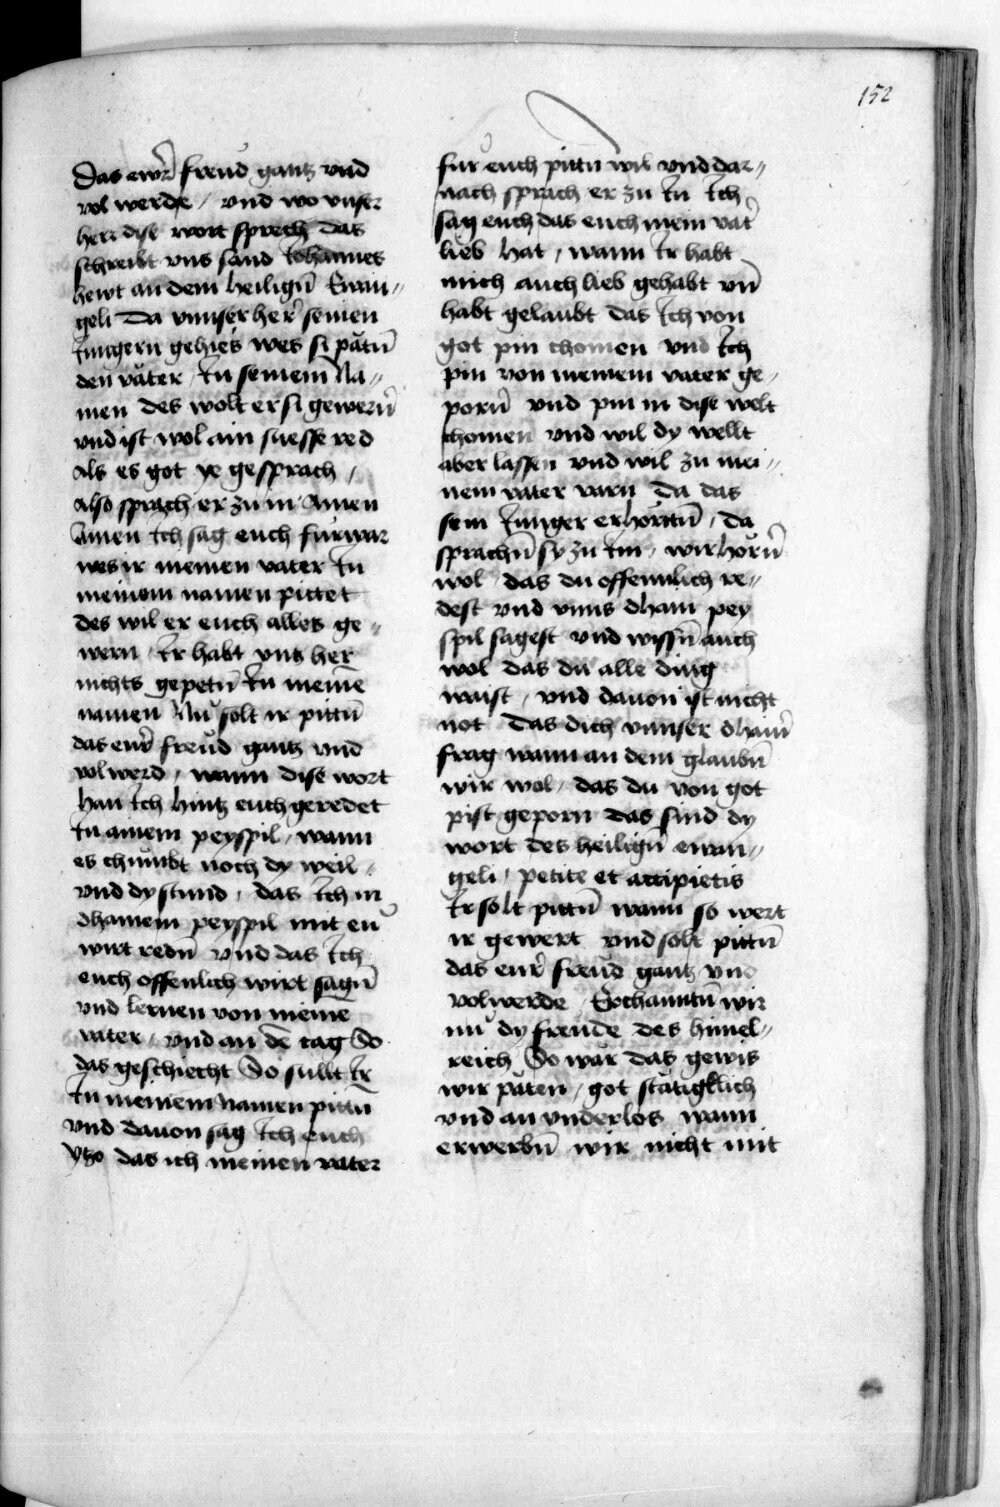 152
Das ewr̄ freud gantz vnd
vol werde / vnd wo vnser
herr dise wort sprech das
schreibt vns sand Johannes
hewt an dem heiligū Ewan〃
geli Da vnnser her̄ seinen
Jungern gehies wes si pätn̄
den vater / In seinem Na〃
men des wolt er si gewern̄
vnd ist wol ain suesse red
Als es got ye gesprach /
Also sprach er zu in Amen
Amen Ich sag euch furwar
wes ir meinen vater In
meinem namen pittet
des wil er euch alles ge〃
wern / Ir habt vntz her
nichts gepetn̄ In meinē
namen Nu solt ir pittn̄
das eur̄ freud gantz vnd
vol werd / wann dise wort
han Ich hintz euch geredet
In ainem peyspil / wann
es chumbt noch dy weil /
vnd dy stund / das Ich in
dhainem peyspil mit eu
wirt redn̄ vnd das Ich
euch offenlich wirt sagn̄
vnd lernen von meinē
vater / vnd an dē tag So
das geschiecht So sullt Ir
In meinem Namen pittn̄
vnd dauon sag Ich euch
ytzo das ich meinen vater
fur euch pittn̄ wil vnd dar〃
nach sprach er zu In Ich
sag euch das euch mein vat̄
lieb hat / wann Ir habt
mich auch lieb gehabt vn̄
habt gelaubt das Ich von
got pin chomen vnd Ich
pin von meinem vater ge〃
porn̄ vnd pin in dise welt
chomen vnd wil dy wellt
aber lassen vnd wil zu mei〃
nem vater varn Da das
sein Junger erhortn̄ / Da
sprachn̄ sy zu Im / wir horn̄
wol / das du offennlich re〃
dest vnd vnns dhain pey
spil sagest vnd wissn̄ auch
wol das du alle ding
waist / vnd dauon ist nicht
not Das dich vnnser dhain̄
frag wann an dem glaubn̄
wir wol / das du von got
pist geporn Das sind dy
wort des heilign̄ ewan〃
geli / petite et accipietis
Ir solt pittn̄ wann so wert
ir gewert vnd solt pittn̄
das eur̄ freud gantz vnd
volwerde / Erchanntn̄ wir
nu dy freude des himel〃
reich So war das gewis
wir päten / got statigklich
vnd an vnderlos wann
erwerbn̄ wir nicht mit